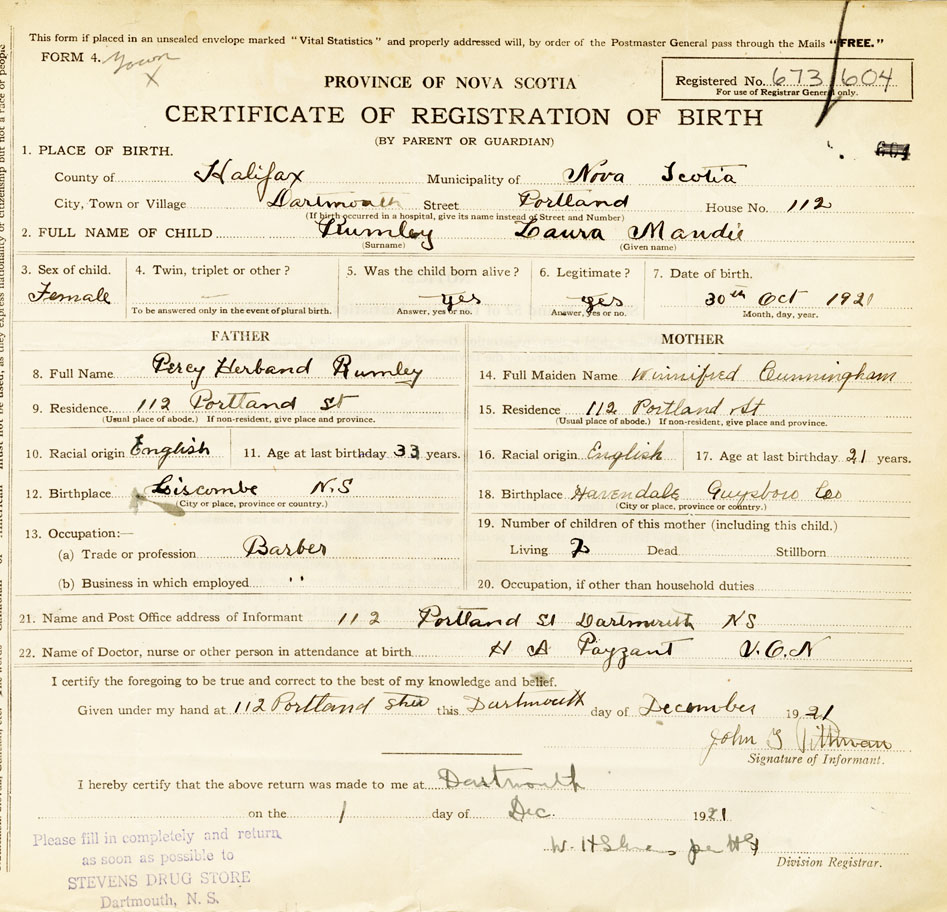 This form if placed in an unsealed envelope marked "Vital Statistics" and properly addressed will, by order of the Postmaster General pass through the Mails "FREE."
FORM 4. Town X
PROVINCE OF NOVA SCOTIA
Registered No. 673 604
For use of Registrar General only.
CERTIFICATE OF REGISTRATION OF BIRTH
(BY PARENT OR GUARDIAN)
604
1. PLACE OF BIRTH.
County of Halifax Municipality of Nova Scotia
City, Town or Village Dartmouth Street Portland House No. 112
(If birth occurred in a hospital, give its name instead of Street and Number)
2. FULL NAME OF CHILD Rumley Laura Maudie
(Surname) (Given name)
3. Sex of child. 4. Twin, triplet or other? 5. Was the child born alive? 6. Legitimate? 7. Date of birth.
Female — yes yes 30th Oct 1921
To be answered only in the event of plural birth. Answer, yes or no. Answer, yes or no. Month, day, year.
FATHER MOTHER
8. Full Name Percy Herband Rumley 14. Full Maiden Name Winnifred Cunningham
9. Residence 112 Portland St 15. Residence 112 Portland St
(Usual place of abode.) If non-resident, give place and province. (Usual place of abode.) If non-resident, give place and province.
10. Racial origin English 11. Age at last birthday 33 years. 16. Racial origin English 17. Age at last birthday 21 years.
12. Birthplace Liscombe N.S 18. Birthplace Havendale Guysboro Co
(City or place, province or country.) (City or place, province or country.)
13. Occupation:— 19. Number of children of this mother (including this child.)
(a) Trade or profession Barber Living 2 Dead Stillborn
(b) Business in which employed " 20. Occupation, if other than household duties
21. Name and Post Office address of Informant 112 Portland St Dartmouth NS
22. Name of Doctor, nurse or other person in attendance at birth H A Payzant V.O.N
I certify the foregoing to be true and correct to the best of my knowledge and belief.
Given under my hand at 112 Portland Street this Dartmouth day of December 1921
John G Pittman
Signature of Informant.
I hereby certify that the above return was made to me at Dartmouth
on the 1 day of Dec. 1921
W. H Stevens per HS
Division Registrar.
Please fill in completely and return
as soon as possible to
STEVENS DRUG STORE
Dartmouth, N. S.